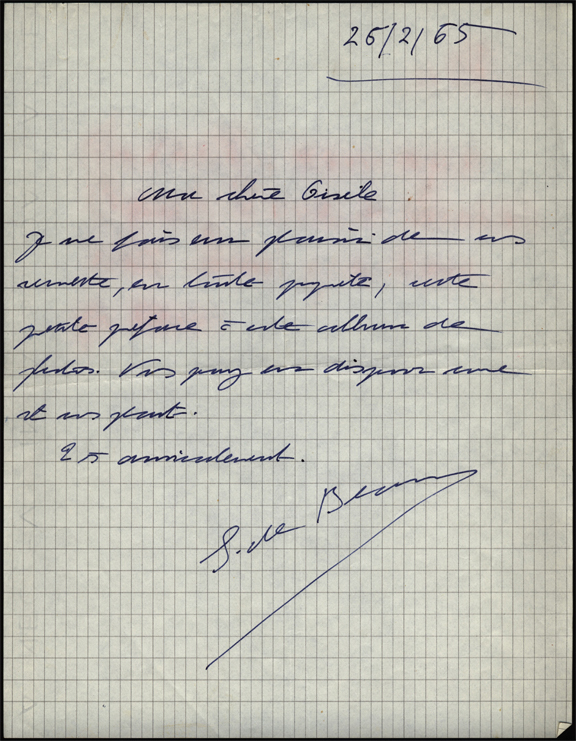 26/2/65
Ma chère Gisèle
Je me fais un plaisir de vous
remettre, en toute propriété, cette
petite préface à cet album de
photos. Vous pouvez en disposer comme
il vous plaît.
amicalement.
S. de Beauvoir